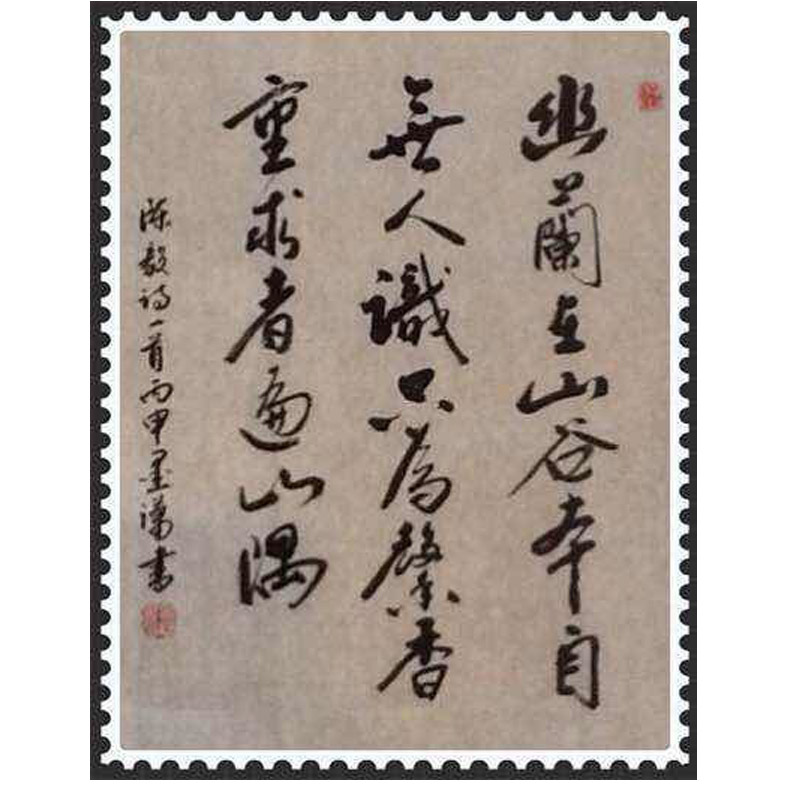 幽蘭在山谷本自
無人識只為馨香
重求者遍山隅
陈毅诗一首丙申墨
書